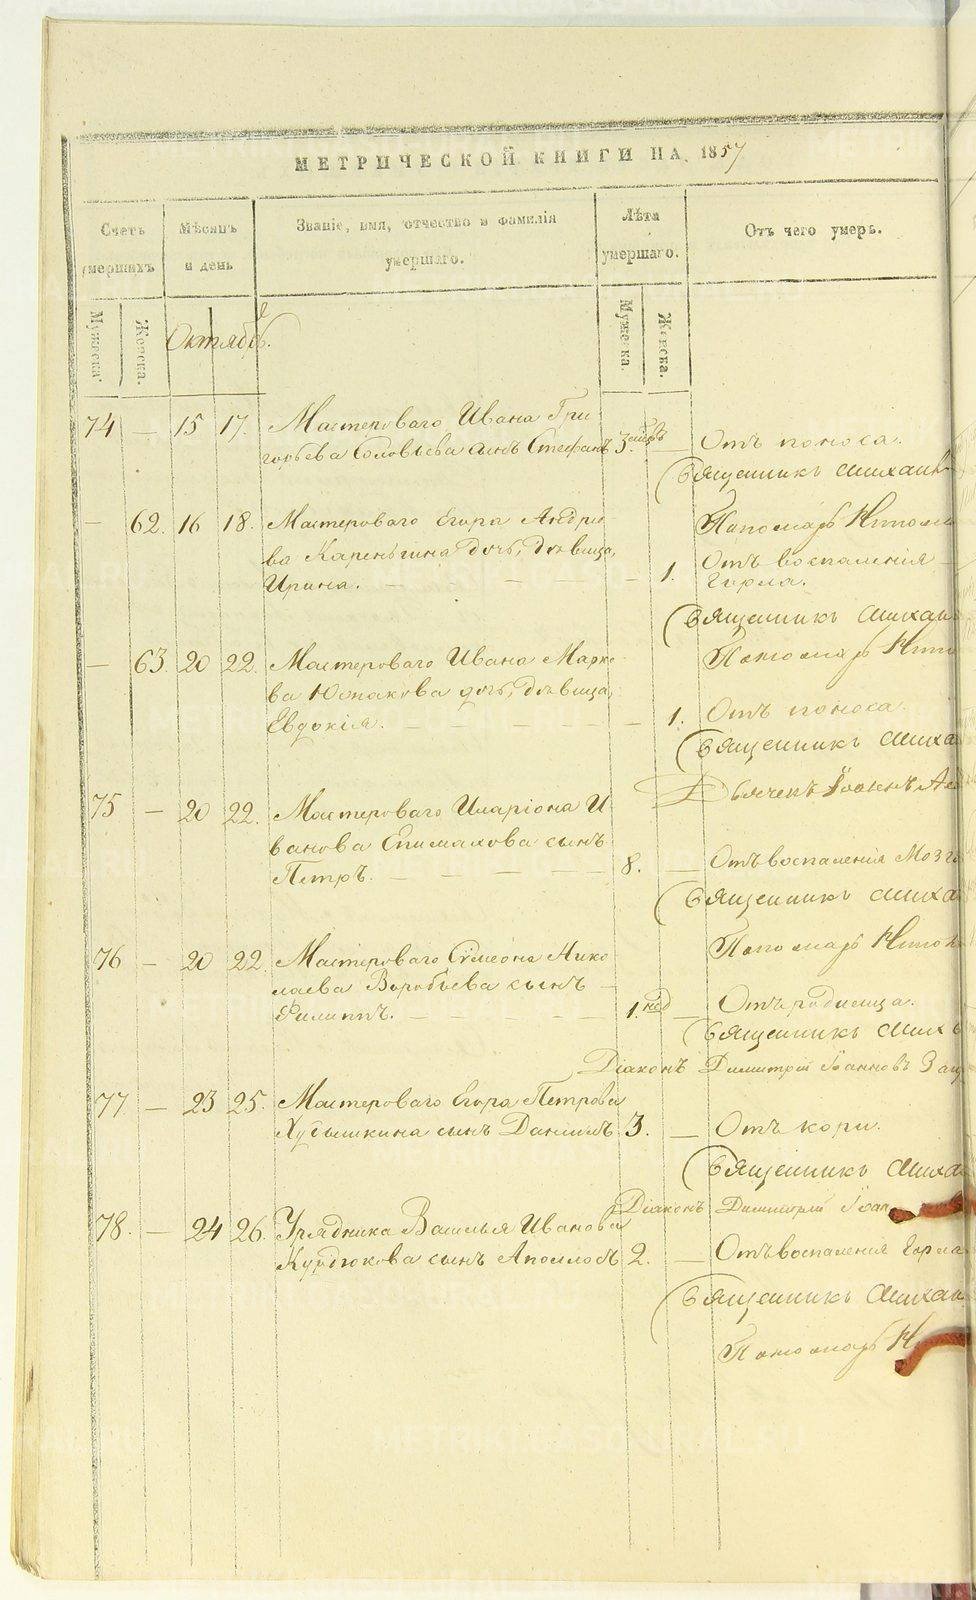 МЕТРИЧЕСКОЙ КНИГИ НА 1857
Счетъ умершихъ
Мѣсяцъ и день
Званіе, имя, отчество и фамилія умершаго.
Лѣта умершаго.
Отъ чего умеръ.
Мужеска.
Женска.
Октябрь.
Мужеска.
Женска.
74 — 15 17. Мастероваго Ивана Гри
горьева Соловьева сынъ Стефанъ 3. — Отъ поноса.
Священникъ Михаи
— 62. 16 18. Мастероваго Егора Андрее Пономарь
ва дочь, дѣвица, Отъ воспаленія
Ирина. — — — 1. Горла.
Священникъ Михаи
— 63. 20 22. Мастероваго Ивана Марко Пономарь
ва Юшакова дочь, дѣвица,
Евдокія. — — — — — 1. Отъ поноса.
Священникъ Миха
75 — 20 22. Мастероваго Иларіона И Дьячекъ Іоаннъ
ванова Епимахова сынъ
Петръ. — — — — 8. — Отъ воспаленія Мозг
Священникъ Миха
76 — 20 22. Мастероваго Сѵмеона Нико Пономарь
лаева Воробьева сынъ —
Филиппъ. — — — — 1. нед — Отъ родимца.
Священникъ Мих
Діаконъ Димитрій Іоанновъ
77 — 23 25. Мастероваго Егора Петрова
сынъ Даніилъ 3. — Отъ кори.
Священникъ Миха
Діаконъ Димитрій Іоан
78. — 24 26. Урядника Василья Иванова
Курдюкова сынъ Аполлосъ 2. — Отъ воспаленія Горла
Священникъ Михаи
Пономарь Н